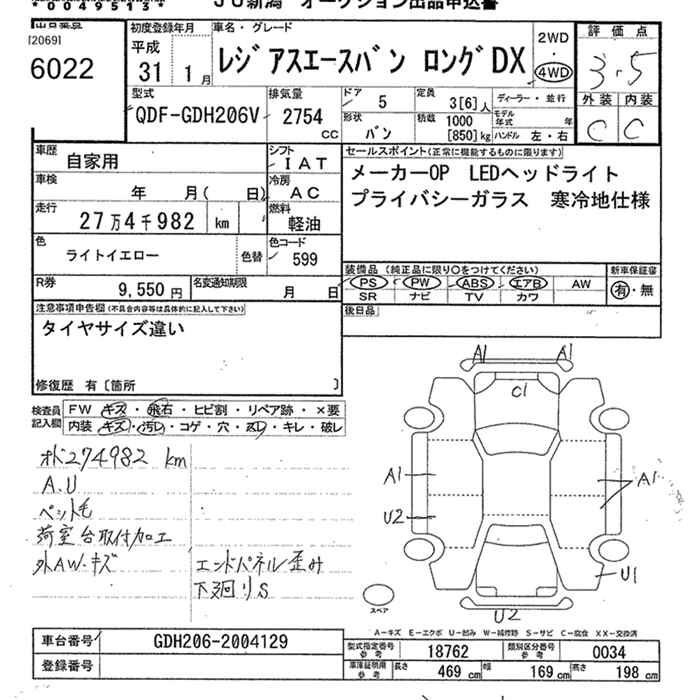 ＪＵ新潟 オークション出品申込書
*20410513*
出品番号
[2069]
6022
初度登録年月
平成
31 1 月
車名・グレード
レジアスエースバン ロングDX
2WD
・
4WD
評価点
3.5
外装 内装
C C
型式
QDF-GDH206V
排気量
2754
cc
ドア
5
定員
3[6]人
ディーラー・並行
形状
バン
積載
1000
[850]kg
モデル
年式 年
ハンドル 左・右
車歴
自家用
シフト
IAT
セールスポイント(正常に機能するものに限ります)
メーカーOP LEDヘッドライト
プライバシーガラス 寒冷地仕様
車検
年 月( 日)
冷房
AC
走行
27万4千982 km
燃料
軽油
色
ライトイエロー
色替
色コード
599
装備品 (純正品に限り○をつけてください)
PS PW ABS エアB AW
SR ナビ TV カワ
新車保証書
有・無
R券
9,550 円
名変通知期限
月 日
後日品
注意事項申告欄(不具合内容等は具体的に記入して下さい)
タイヤサイズ違い
修復歴 有〔箇所 〕
検査員
記入欄
FW キズ・飛石・ヒビ割・リペア跡・×要
内装 キズ・汚レ・コゲ・穴・スレ・キレ・破レ
オド274982 km
A.U
ペット毛
荷室台取付加工
外AW・キズ
エンドパネル歪み
下廻りS
A1 A1
C1
A1
A1
U2
U1
U2
スペア
A－キズ E－エクボ U－凹み W－補修跡 S－サビ C－腐食 XX－交換済
車台番号
GDH206-2004129
登録番号
型式指定番号
参考
18762
類別区分番号
参考
0034
車庫証明用
参考
長さ
469 cm
幅
169 cm
高さ
198 cm